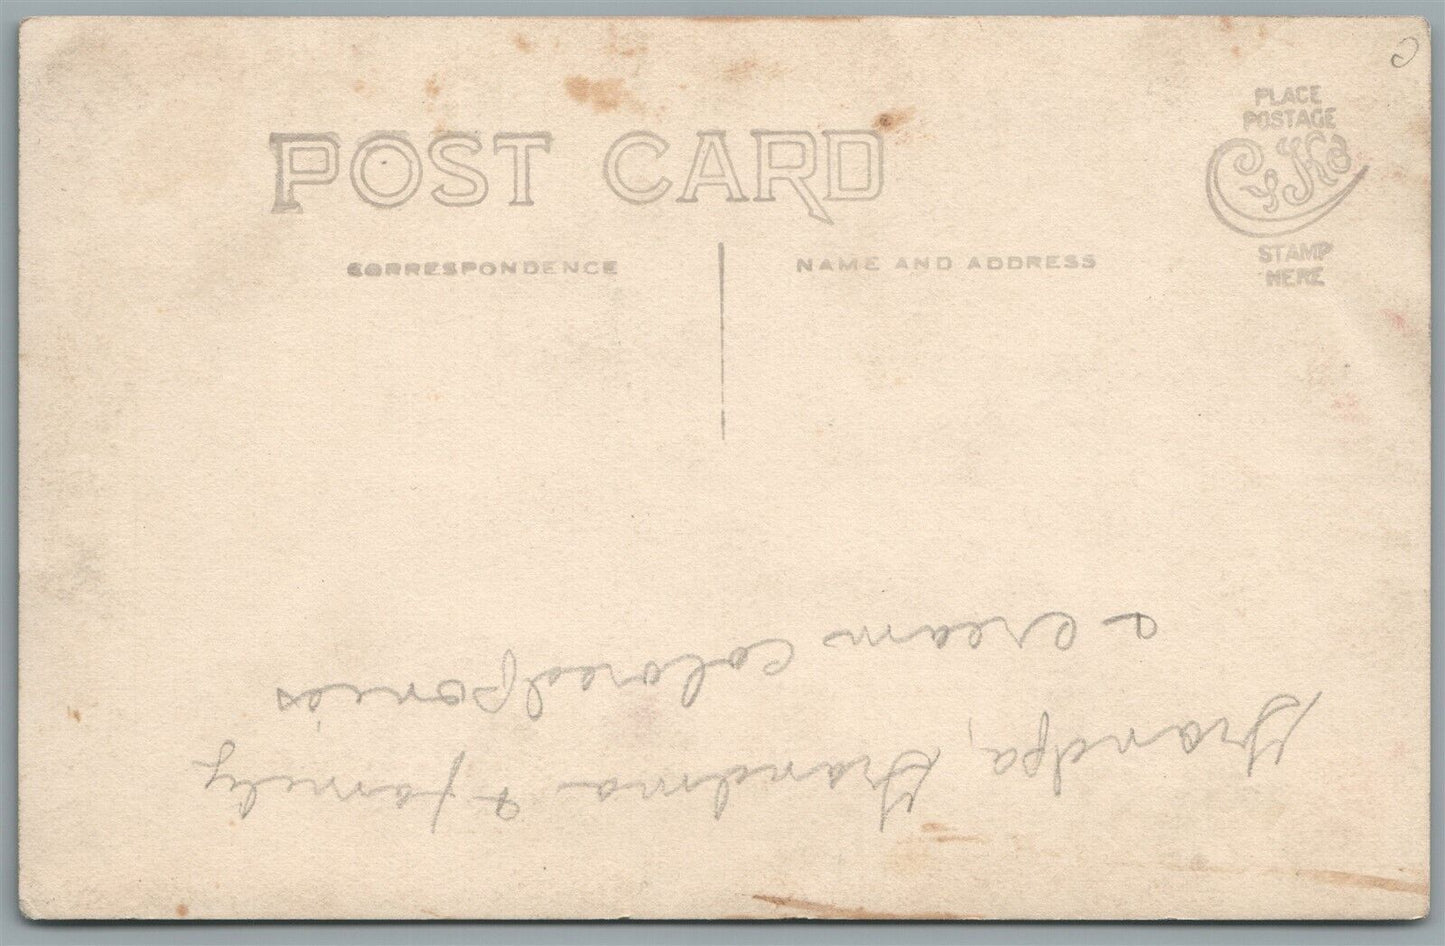 POST CARD
CORRESPONDENCE
NAME AND ADDRESS
PLACE
POSTAGE
CYKO
STAMP
HERE
Grandpa, Grandma & family
& cream colored ponies